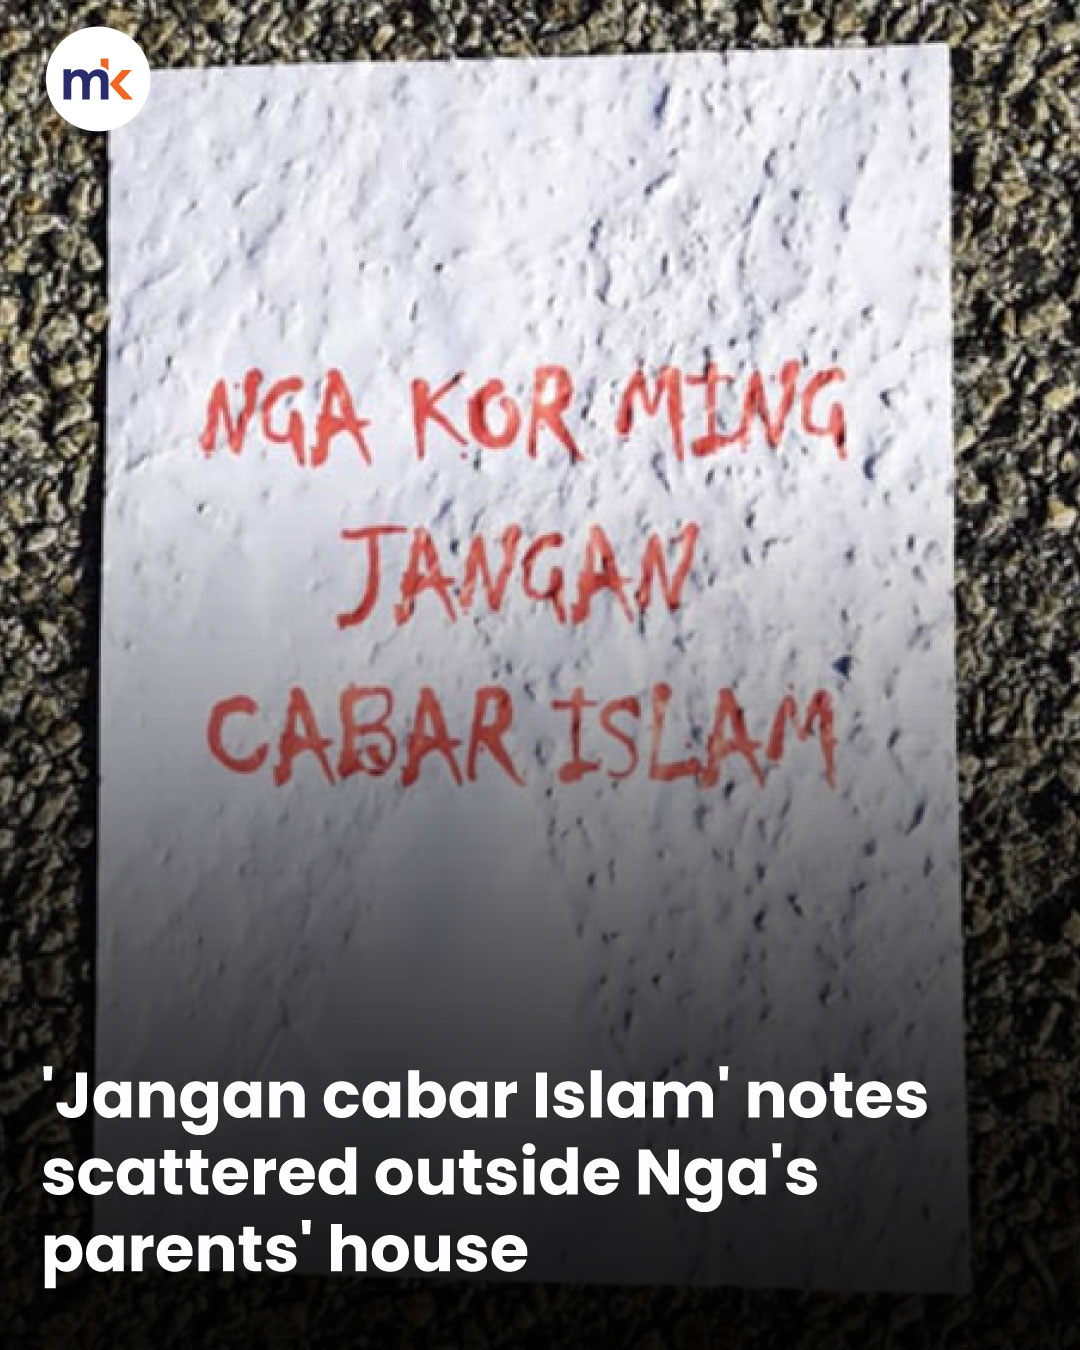 mk
NGA KOR MING
JANGAN
CABAR ISLAM
'Jangan cabar Islam' notes
scattered outside Nga's
parents' house